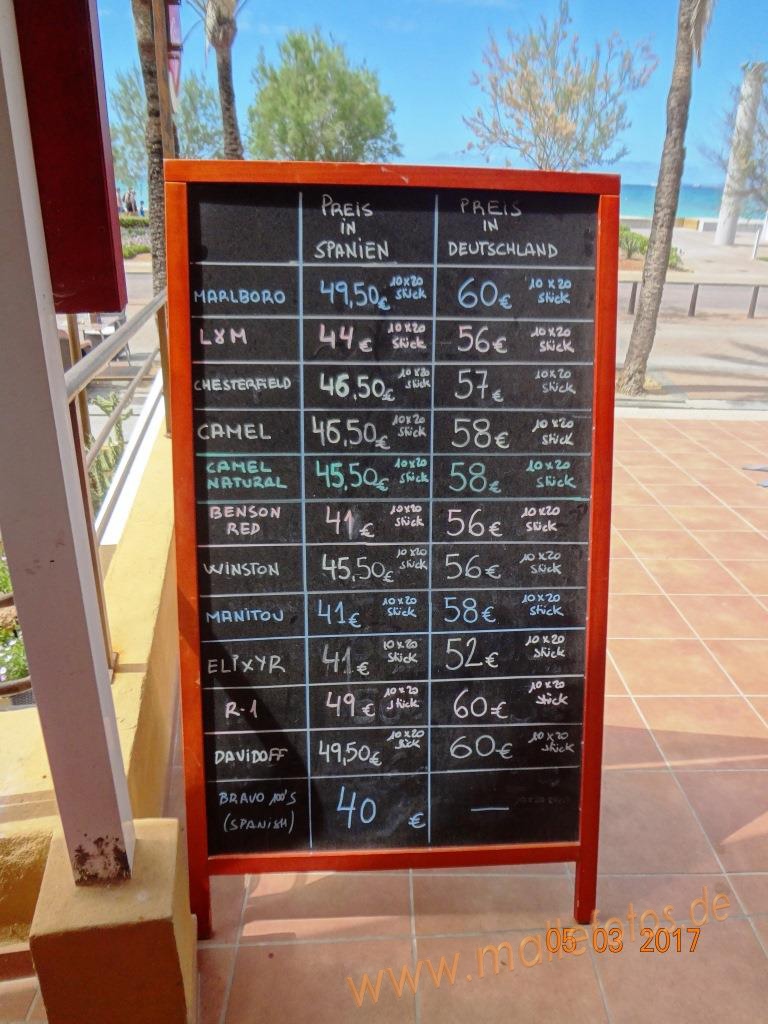 PREIS IN SPANIEN PREIS IN DEUTSCHLAND
MARLBORO 49,50€ 10x20 Stück 60€ 10x20 Stück
L&M 44€ 10x20 Stück 56€ 10x20 Stück
CHESTERFIELD 46,50€ 10x20 Stück 57€ 10x20 Stück
CAMEL 46,50€ 10x20 Stück 58€ 10x20 Stück
CAMEL NATURAL 45,50€ 10x20 Stück 58€ 10x20 Stück
BENSON RED 41€ 10x20 Stück 56€ 10x20 Stück
WINSTON 45,50€ 10x20 Stück 56€ 10x20 Stück
MANITOU 41€ 10x20 Stück 58€ 10x20 Stück
ELIXYR 41€ 10x20 Stück 52€ 10x20 Stück
R-1 49€ 10x20 Stück 60€ 10x20 Stück
DAVIDOFF 49,50€ 10x20 Stück 60€ 10x20 Stück
BRAVO 100'S (SPANISH) 40 € —
www.mallefotos.de
05 03 2017